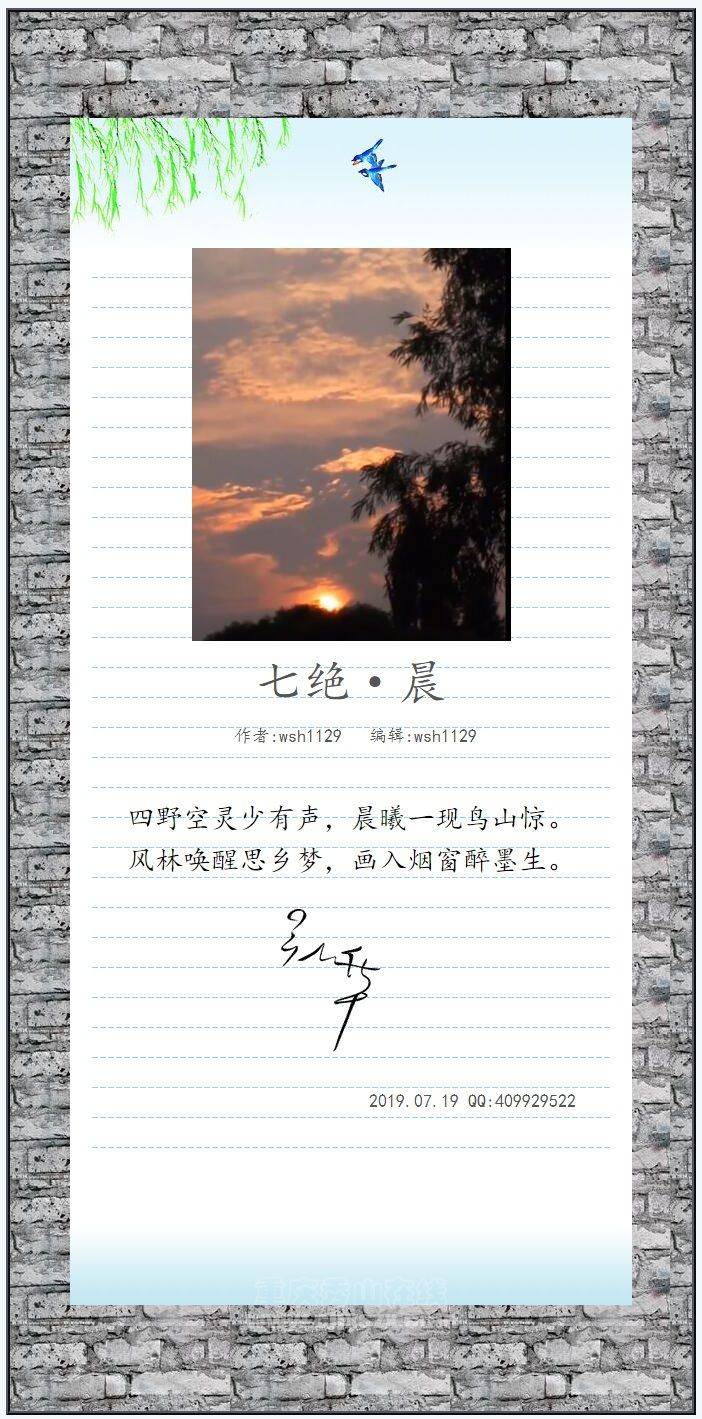 七绝·晨
作者:wsh1129 编辑:wsh1129
四野空灵少有声，晨曦一现鸟山惊。
风林唤醒思乡梦，画入烟窗醉墨生。
2019.07.19 QQ:409929522